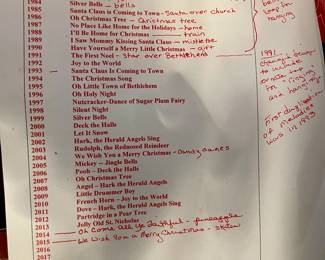 1984 Silver Bells – bells
1985 Santa Claus is Coming to Town - Santa over church
1986 Oh Christmas Tree – Christmas tree
1987 No Place Like Home for the Holidays – home
1988 I'll Be Home for Christmas – train
1989 I Saw Mommy Kissing Santa Claus – mistletoe
1990 Have Yourself a Merry Little Christmas – gift
1991 The First Noel – Star over Bethlehem
1992 Joy to the World
1993 Santa Claus is Coming to Town
1994 The Christmas Song
1995 Oh Little Town of Bethlehem
1996 Oh Holy Night
1997 Nutcracker-Dance of Sugar Plum Fairy
1998 Silent Night
1999 Silver Bells
2000 Deck the Halls
2001 Let it Snow
2002 Hark, the Herald Angels Sing
2003 Rudolph, the Rednosed Reindeer
2004 We Wish You a Merry Christmas – candy canes
2005 Mickey – Jingle Bells
2006 Pooh – Deck the Halls
2007 Oh Christmas Tree
2008 Angel – Hark the Herald Angels
2009 Little Drummer Boy
2010 French Horn – Joy to the World
2011 Dove – Hark, the Herald Angels Sing
2012 Partridge in a Pear Tree
2013 Jolly Old St. Nicholas
2014 – Oh Come All Ye Faithful – pineapple
2015 – We Wish You a Merry Christmas –
2016
2017
for
hanging
1991 –
to include
for ringing
and hanging
First
of melodies
was in 1983